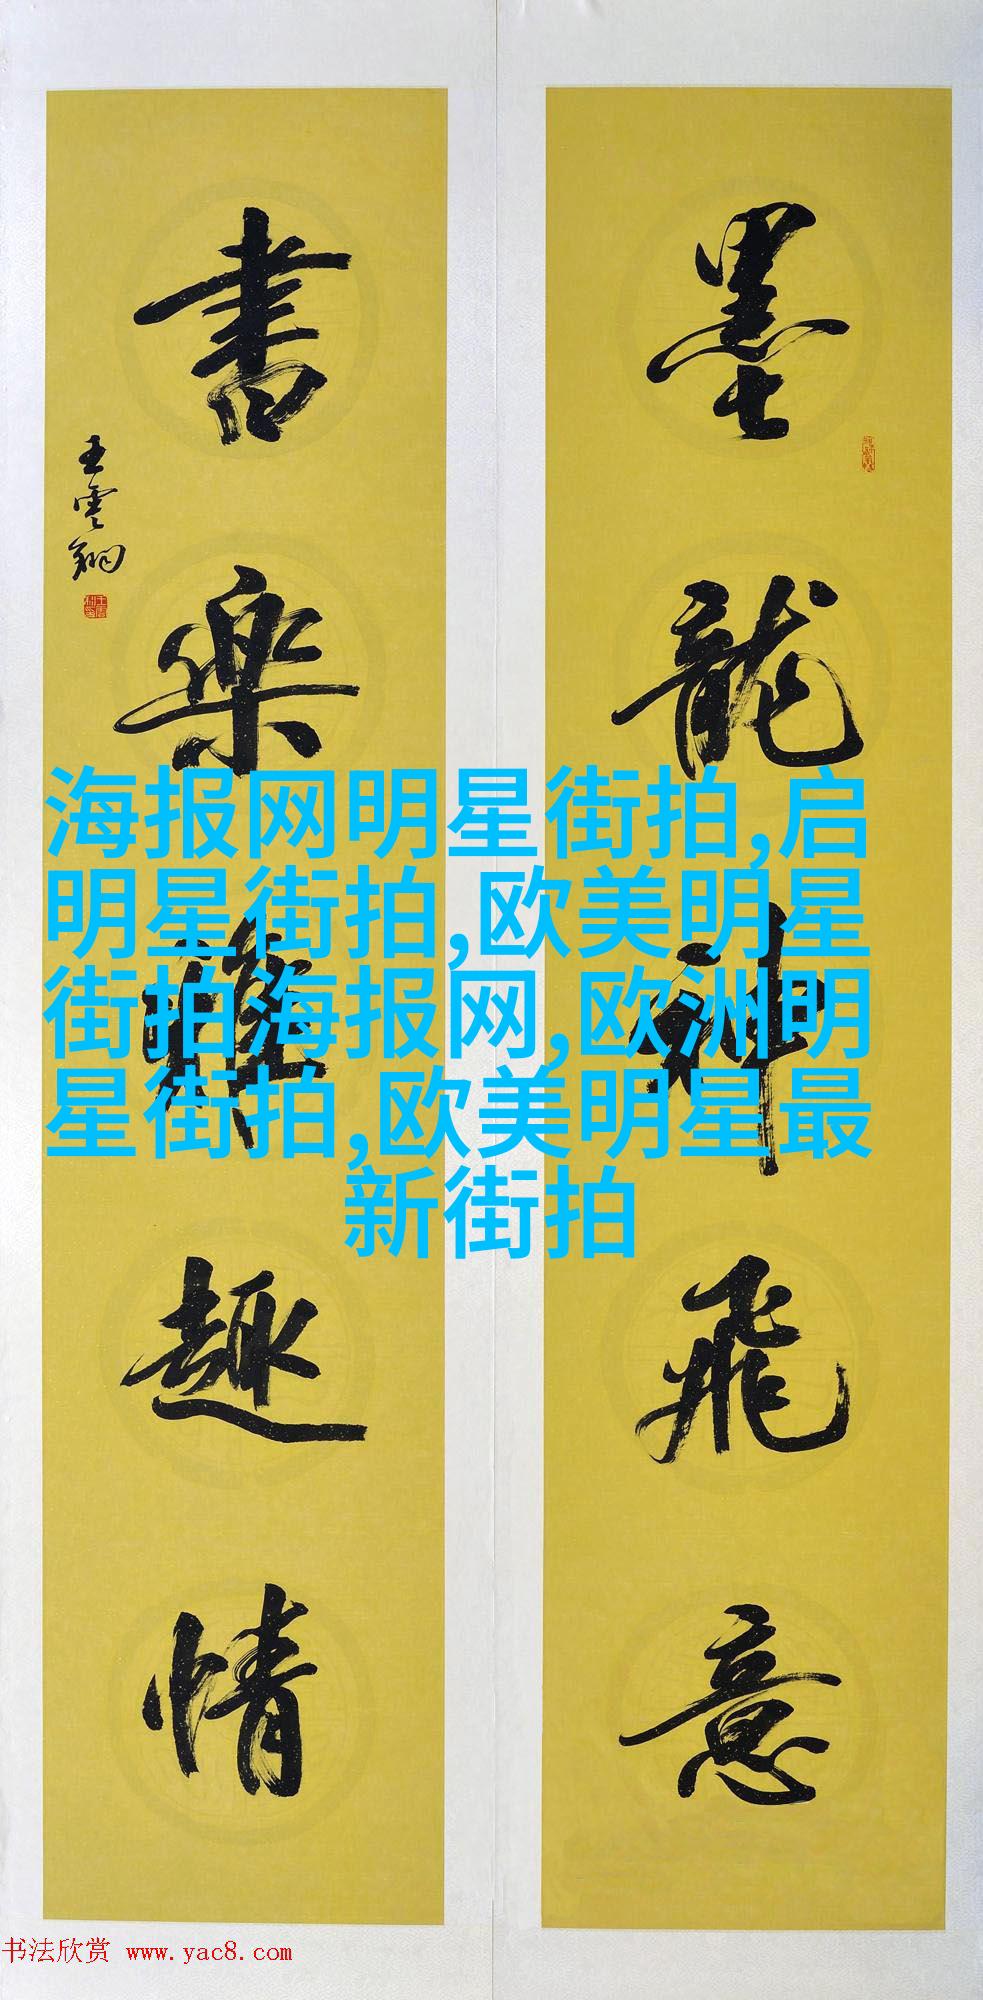 墨龍神飛意
書樂雅趣情
王雲翔
海报网明星街拍,启
明星街拍,欧美明星
街拍海报网,欧洲明
星街拍,欧美明星最
新街拍
书法欣赏 www.yac8.com